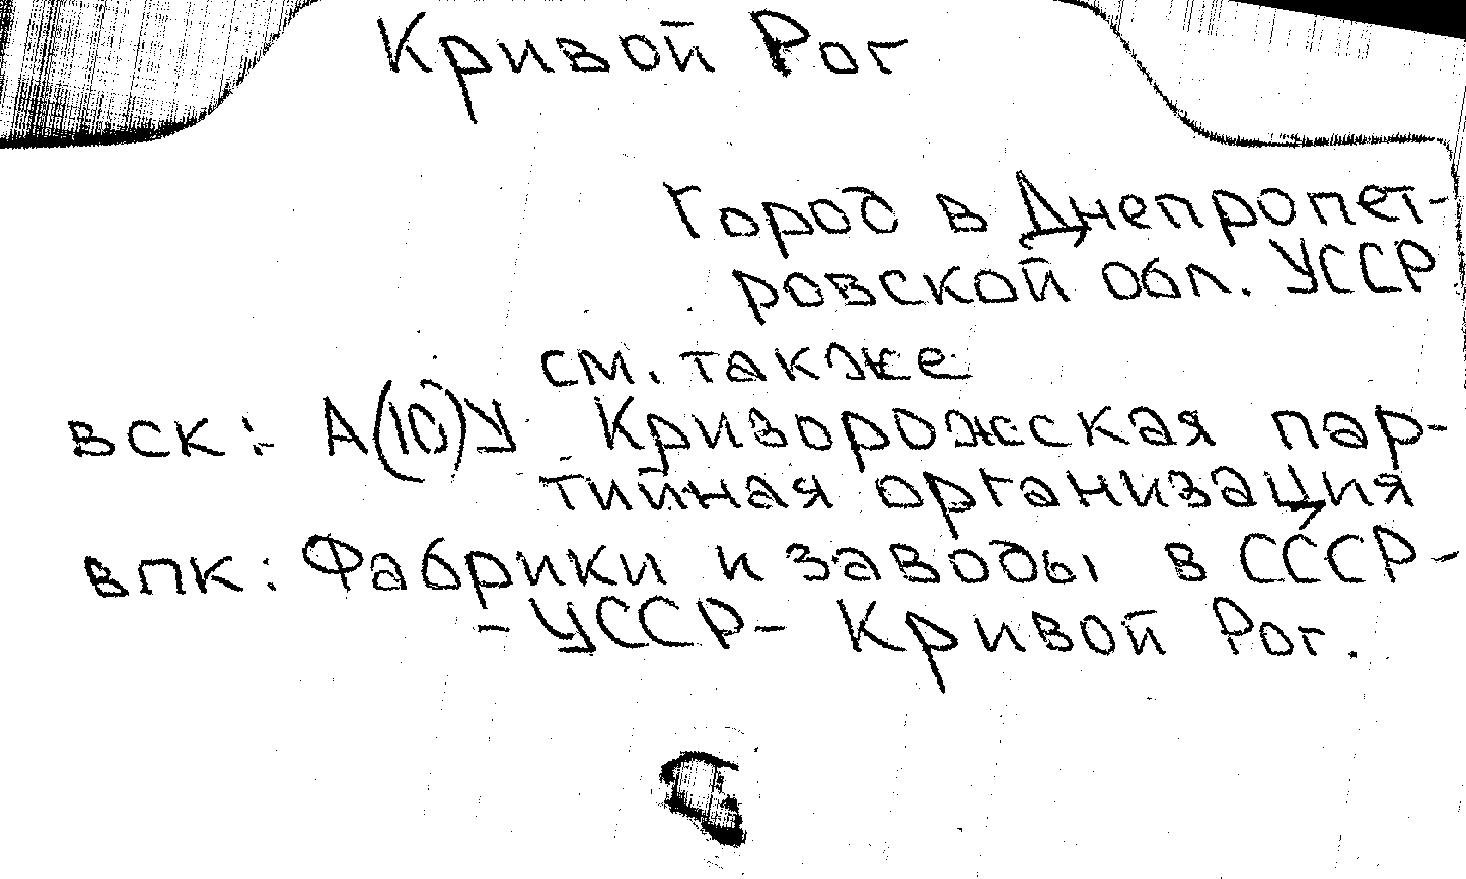 Кривой Рог
Город в Днепропет-
ровской обл. УССР
см. также
ВСК:- А(10)У Криворожская пар-
тийная организация
ВПК: Фабрики и заводы в СССР-
-УССР- Кривой Рог.